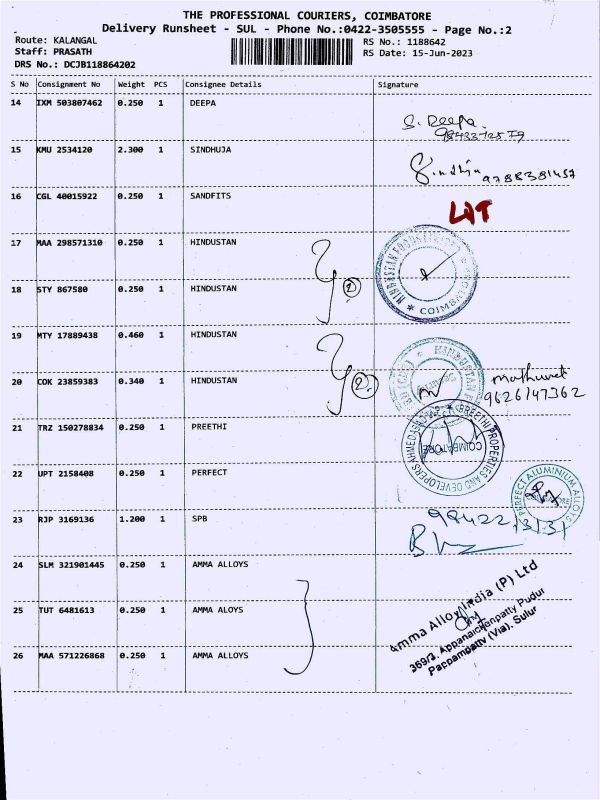 THE PROFESSIONAL COURIERS, COIMBATORE
Delivery Runsheet - SUL - Phone No.:0422-3505555 - Page No.:2
Route: KALANGAL
RS No.: 1188642
Staff: PRASATH
RS Date: 15-Jun-2023
DRS No.: DCJB118864202
S No Consignment No Weight PCS Consignee Details Signature
14 IXM 503807462 0.250 1 DEEPA
S. Deepa
15 KMU 2534120 2.300 1 SINDHUJA
9788381457
16 CGL 40015922 0.250 1 SANDFITS
17 MAA 298571310 0.250 1 HINDUSTAN
18 STY 867580 0.250 1 HINDUSTAN
2
COIMBATORE
19 MTY 17889438 0.460 1 HINDUSTAN
HINDUSTAN
20 COK 23859383 0.340 1 HINDUSTAN
2
9626147362
21 TRZ 150278834 0.250 1 PREETHI
PREETHI PROPERTIES AND DEVELOPERS
COIMBATORE
22 UPT 2158408 0.250 1 PERFECT
PERFECT ALUMINIUM ALLOYS
23 RJP 3169136 1.200 1 SPB
98422 13131
24 SLM 321901445 0.250 1 AMMA ALLOYS
25 TUT 6481613 0.250 1 AMMA ALOYS
26 MAA 571226868 0.250 1 AMMA ALLOYS
Amma Alloy India (P) Ltd
369/3, Appanaickenpatty Pudur
Pappampatty (Via), Sulur